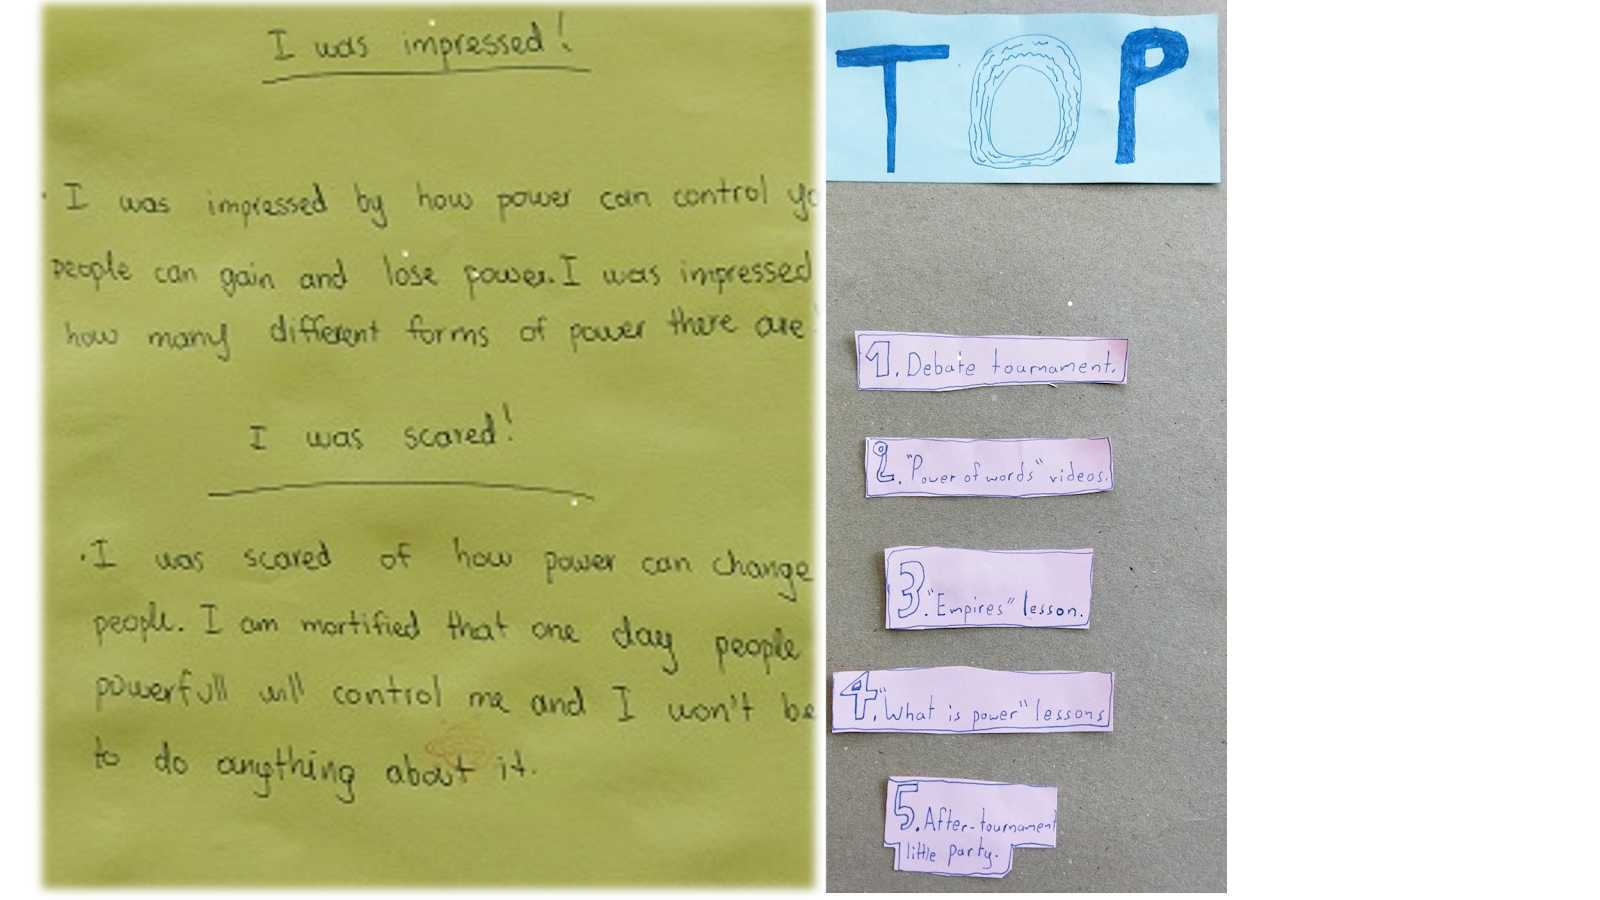 I was impressed!
· I was impressed by how power can control yo
people can gain and lose power. I was impressed
how many different forms of power there are!
I was scared!
· I was scared of how power can change
people. I am mortified that one day people
powerfull will control me and I won't be
to do anything about it.
TOP
1. Debate tournament.
2. "Power of words" videos.
3. "Empires" lesson.
4. "What is power" lessons
5. After-tournament
little party.